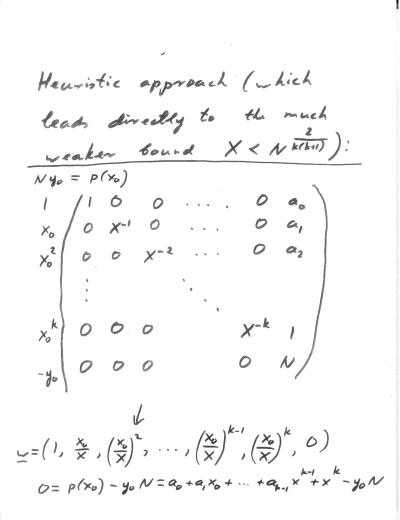 Heuristic approach (which
leads directly to the much
weaker bound X < N^{2/(k(k+1))}):
Ny₀ = p(x₀)
1 ( 1 0 0 .... 0 a₀
x₀ 0 X⁻¹ 0 ... 0 a₁
x₀² 0 0 X⁻² ... 0 a₂
⋮ ⋱
x₀ᵏ 0 0 0 X⁻ᵏ 1
-y₀ 0 0 0 0 N )
↓
w = (1, x₀/X, (x₀/X)², ..., (x₀/X)ᵏ⁻¹, (x₀/X)ᵏ, 0)
0 = p(x₀) - y₀N = a₀ + a₁x₀ + ... + aₖ₋₁xᵏ⁻¹ + xᵏ - y₀N